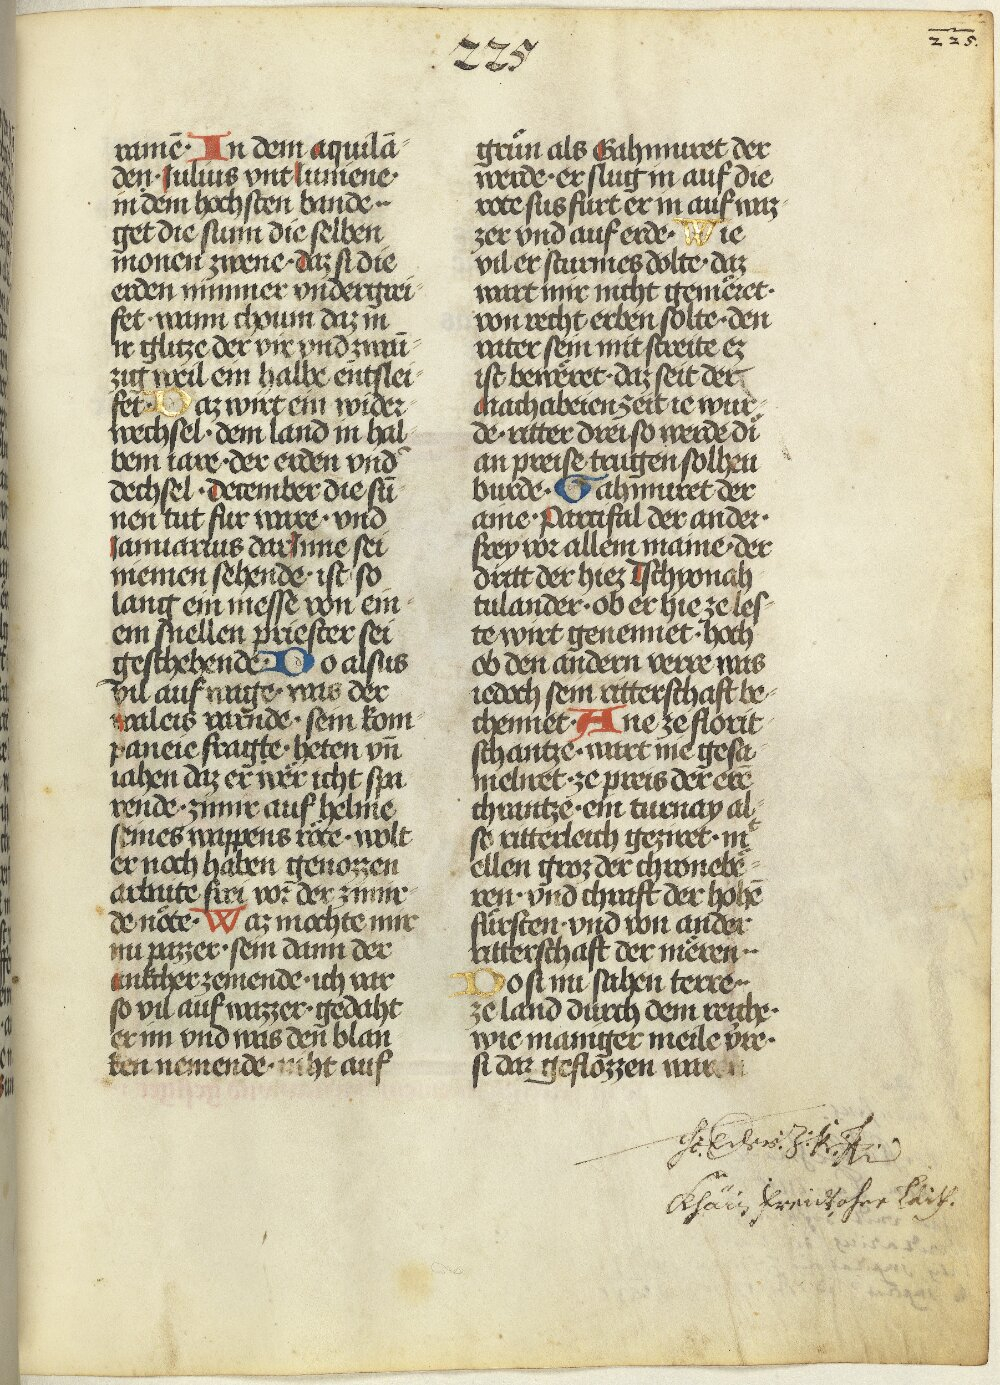 225
225.
ramē· In dem aquilā-
den· Julius vnt Iuniene·
in dem hochsten bande··
get die sunn die selben
monen zwene· daz si die
erden nimmer vndergrei-
fet· wann choum daz in
ir glitze der vir vnd zwaī-
zig weil ein halbe entslei-
fet· Daz wirt ein wider-
wechsel· dem land in hal-
bem iare· der erden vnd
dechsel· december die sū-
nen tut fur ware· vnd
Januarius darInne sei
niemen sehende· ist so
lang ein messe von ein-
em snellen priester sei
geschehende· Do alsus
vil auf wage· was der
waleis varnde· sein kom-
paneie fragte· heten vn̄
iahen daz er wer icht spa-
rende· zimir auf helme
seines wappens röte· wolt
er noch haben genozzen
arbaite frei vor der zimir-
de nöte· Waz mochte mir
nu pazzer· sein dann der
ankcher zemende· ich var
so vil auf wazzer· gedaht
er im vnd was den blan-
ken nemende· niht auf
grün als Gahmuret der
werde· er slug in auf die
rote sus furt er in auf waz-
zer vnd auf erde· Wie
vil er sturmes dolte· daz
wart mir nicht gemēret·
von recht erben solte· den
vater sein mit streite ez
ist bewēret· daz seit der
machabeien zeit ie wur-
de· ritter drei so werde di
an preise trugen solhen
burde· Gahmuret der
aine· Parcifal der ander·
frey vor allem maine· der
dritt der hiez Tschyonah-
tulander· ob er hie ze les-
te wirt genennet· hoch
ob den andern verre was
iedoch sein ritterschaft be-
chennet· Ane ze florit
schantze· wart nie gesa-
melnet· ze preis der erē
chrantze· ein turnay al-
so ritterleich gezieret· mit
ellen groz der chronebē-
ren· vnd chraft der hohē
fürsten· vnd von ander
ritterschaft der mēren··
Do si nu sahen terre··
ze land durch dem reiche·
wie maniger meile vrre·
si dar geflozzen waren